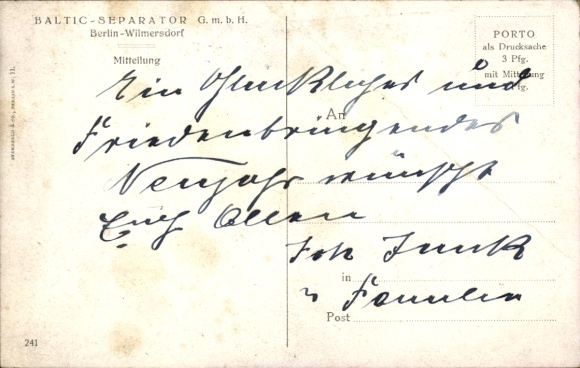 BALTIC-SEPARATOR G. m. b. H.
Berlin-Wilmersdorf
Mitteilung
PORTO
als Drucksache
3 Pfg.
mit Mitteilung
Pfg.
An
Ein Glückliches und
Friedenbringendes
Neujahr wünscht
Euch Allen
Joh Junk
in
u Familie
Post
241